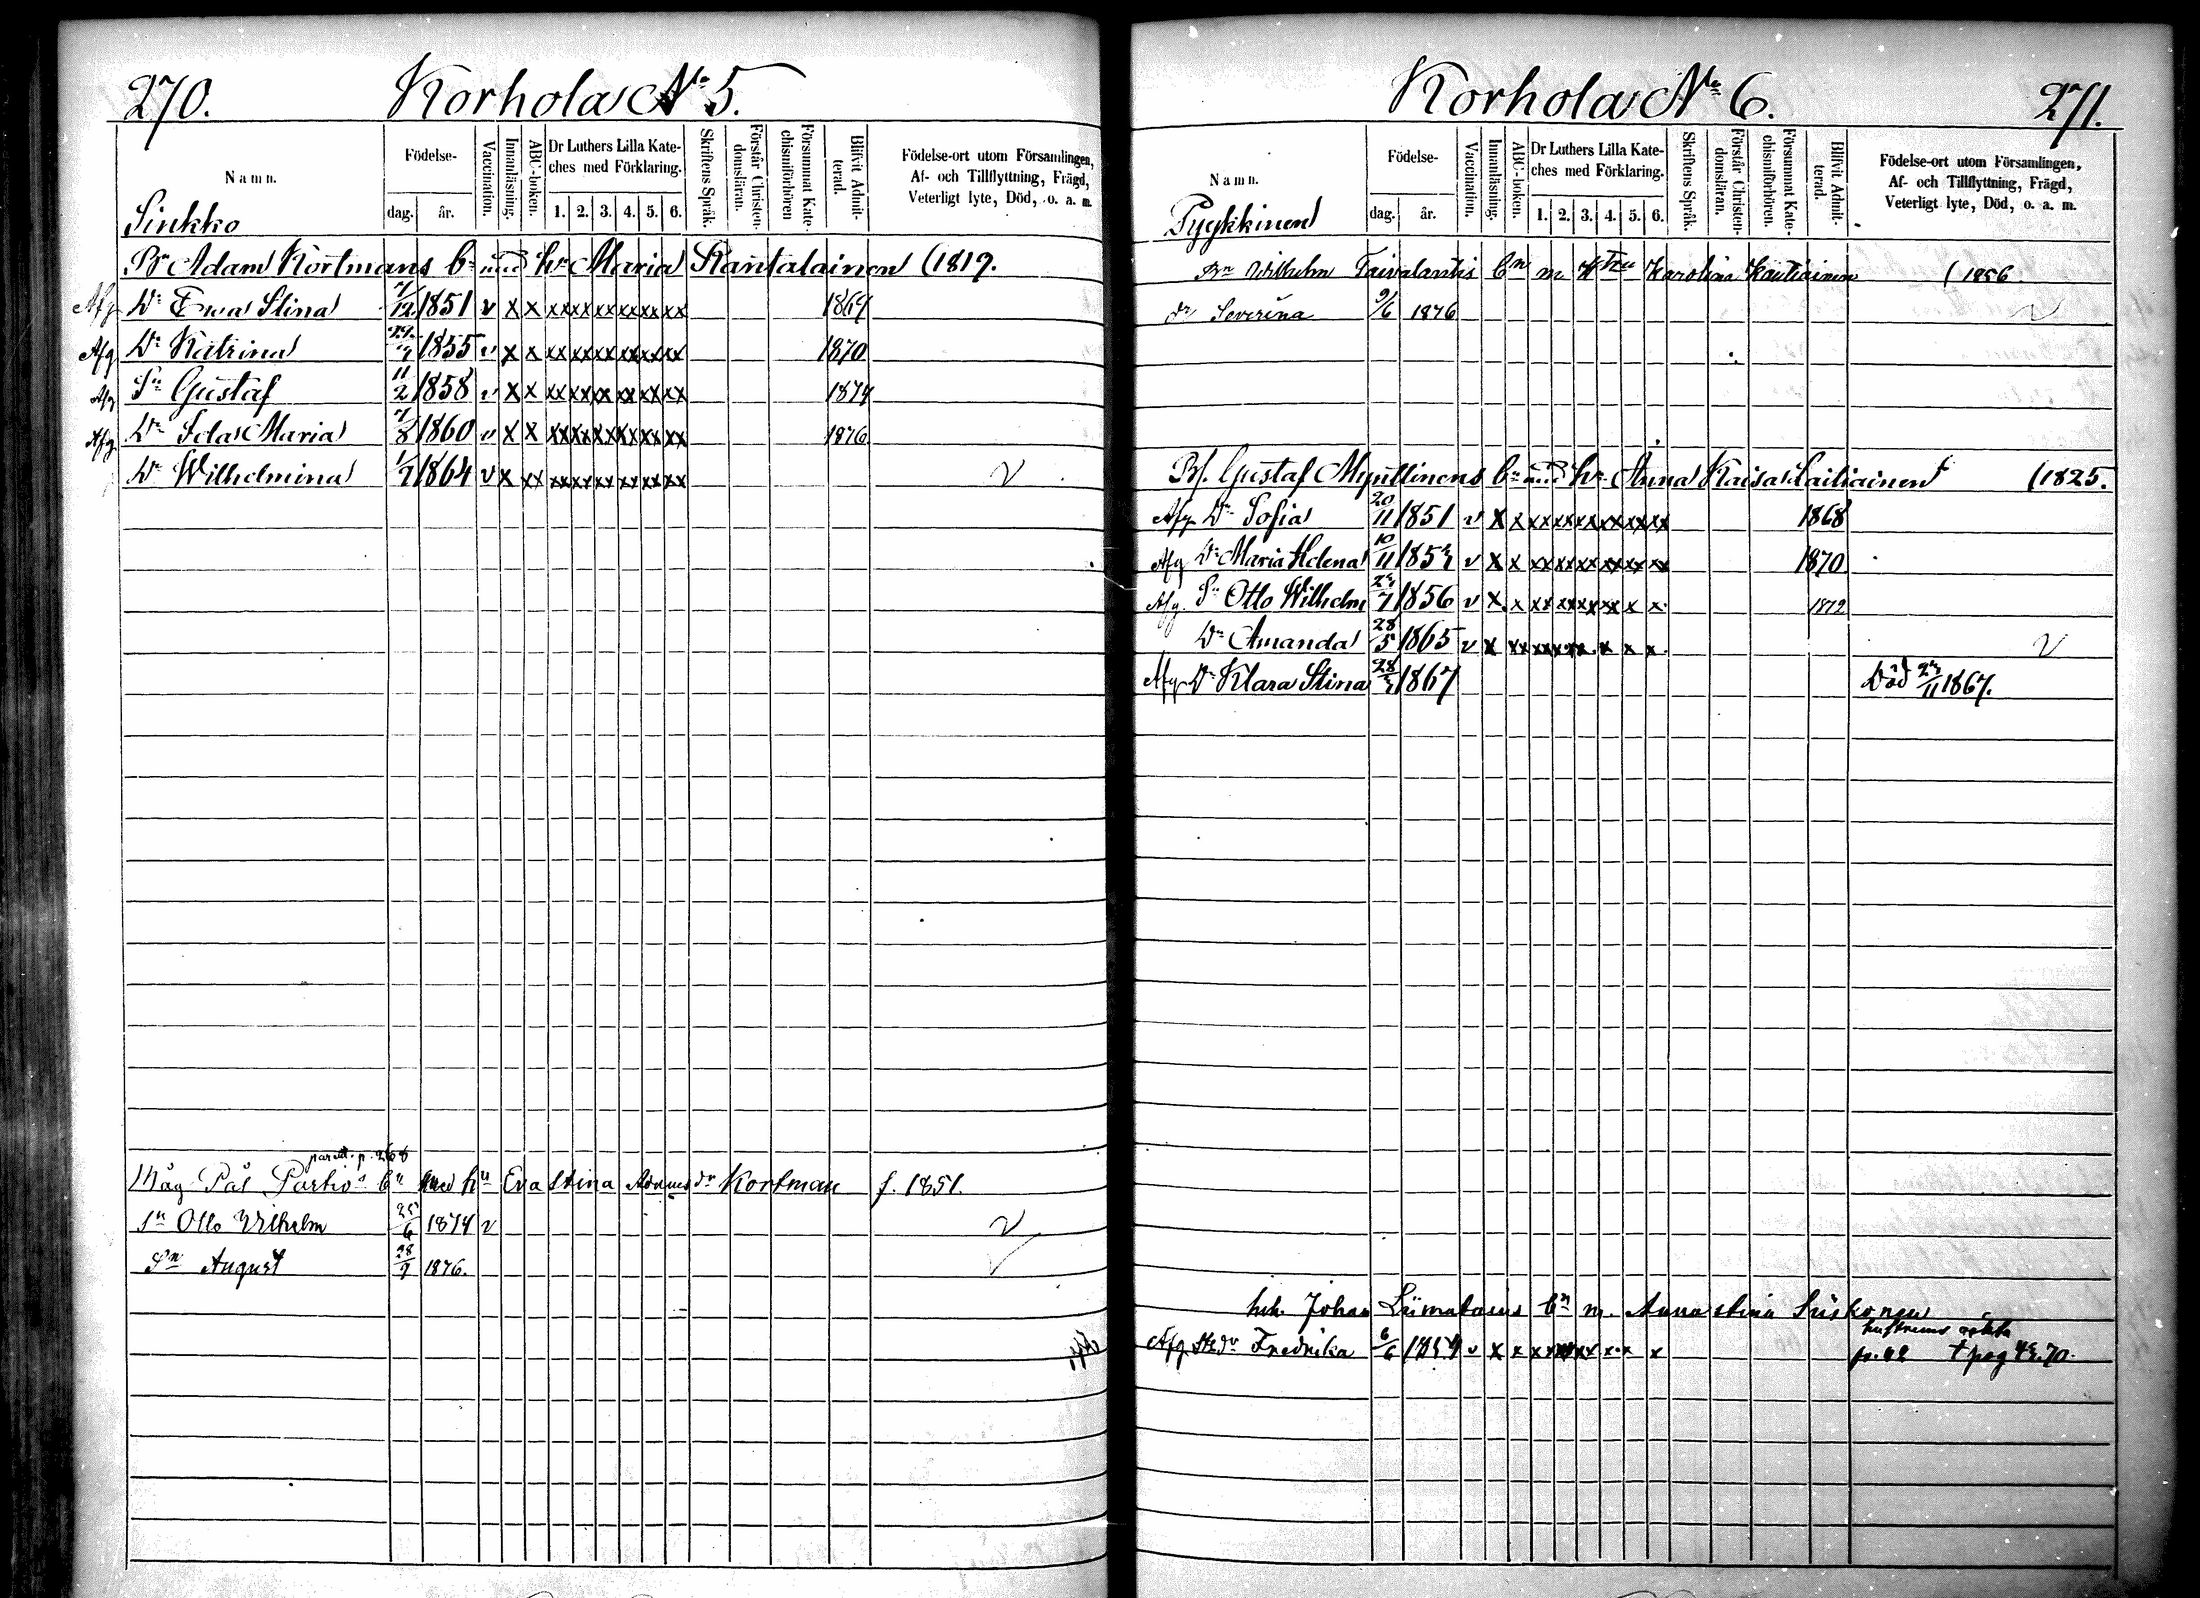 270.
Korhola No 5.
Namn.
Födelse-
dag.
år.
Vaccination.
Innanläsning.
ABC-boken.
Dr Luthers Lilla Kate-
ches med Förklaring.
1. 2. 3. 4. 5. 6.
Skriftens Språk.
Förstår Christen-
domsläran.
Försummat Kate-
chismiförhören
Blifvit Admit-
terad.
Födelse-ort utom Församlingen,
Af- och Tillflyttning, Frägd,
Veterligt lyte, Död, o. a. m.
Sinkko
Bn Adam Kortmans bn med hn Maria Rantalainen (1819.
Afg Dr Ewa Stina 7/12 1851 v x x xx xx xx xx xx xx 1869
Afg Dr Katrina 1855 v x x xx xx xx xx xx xx 1870
Afg Sn Gustaf 11/2 1858 v x x xx xx xx xx xx xx 1874
Afg Dr Ida Maria 7/8 1860 v x x xx xx xx xx xx xx 1876
Dr Wilhelmina 1/7 1864 v x xx xx xx xx xx xx xx v
p. 268
Måg Pål Partios bn med hn Eva Stina Adamsdr Kortman f. 1851.
sn Otto Vilhelm 25/6 1874 v v
Sn August 28/7 1876.
Korhola No 6.
271.
Namn.
Födelse-
dag.
år.
Vaccination.
Innanläsning.
ABC-boken.
Dr Luthers Lilla Kate-
ches med Förklaring.
1. 2. 3. 4. 5. 6.
Skriftens Språk.
Förstår Christen-
domsläran.
Försummat Kate-
chismiförhören.
Blifvit Admit-
terad.
Födelse-ort utom Församlingen,
Af- och Tillflyttning, Frägd,
Veterligt lyte, Död, o. a. m.
Pyykkinen
Bn Wilhelm Taivalantis bn m Karolina (1856
dr Severina 9/6 1876
Bf. Gustaf Mynttinens bn med hn Anna Kaisa Laitiainen (1825.
Afg Dr Sofia 20/11 1851 v x x xx xx xx xx xx xx 1868
Afg Dr Maria Helena 10/11 1853 v x x xx xx xx xx xx xx 1870
Afg. Sn Otto Wilhelm 23/7 1856 v x x xx xx xx xx x x 1872
Dr Amanda 28/5 1865 v x xx xx xx xx x x x v
Afg Dr Klara Stina 28/3 1867 Död 23/11 1867.
Johan Liimatains bn m. Anna Stina
hustruns
Afg dr Fredrika 6/6 1854 v x x † pag 43.70.